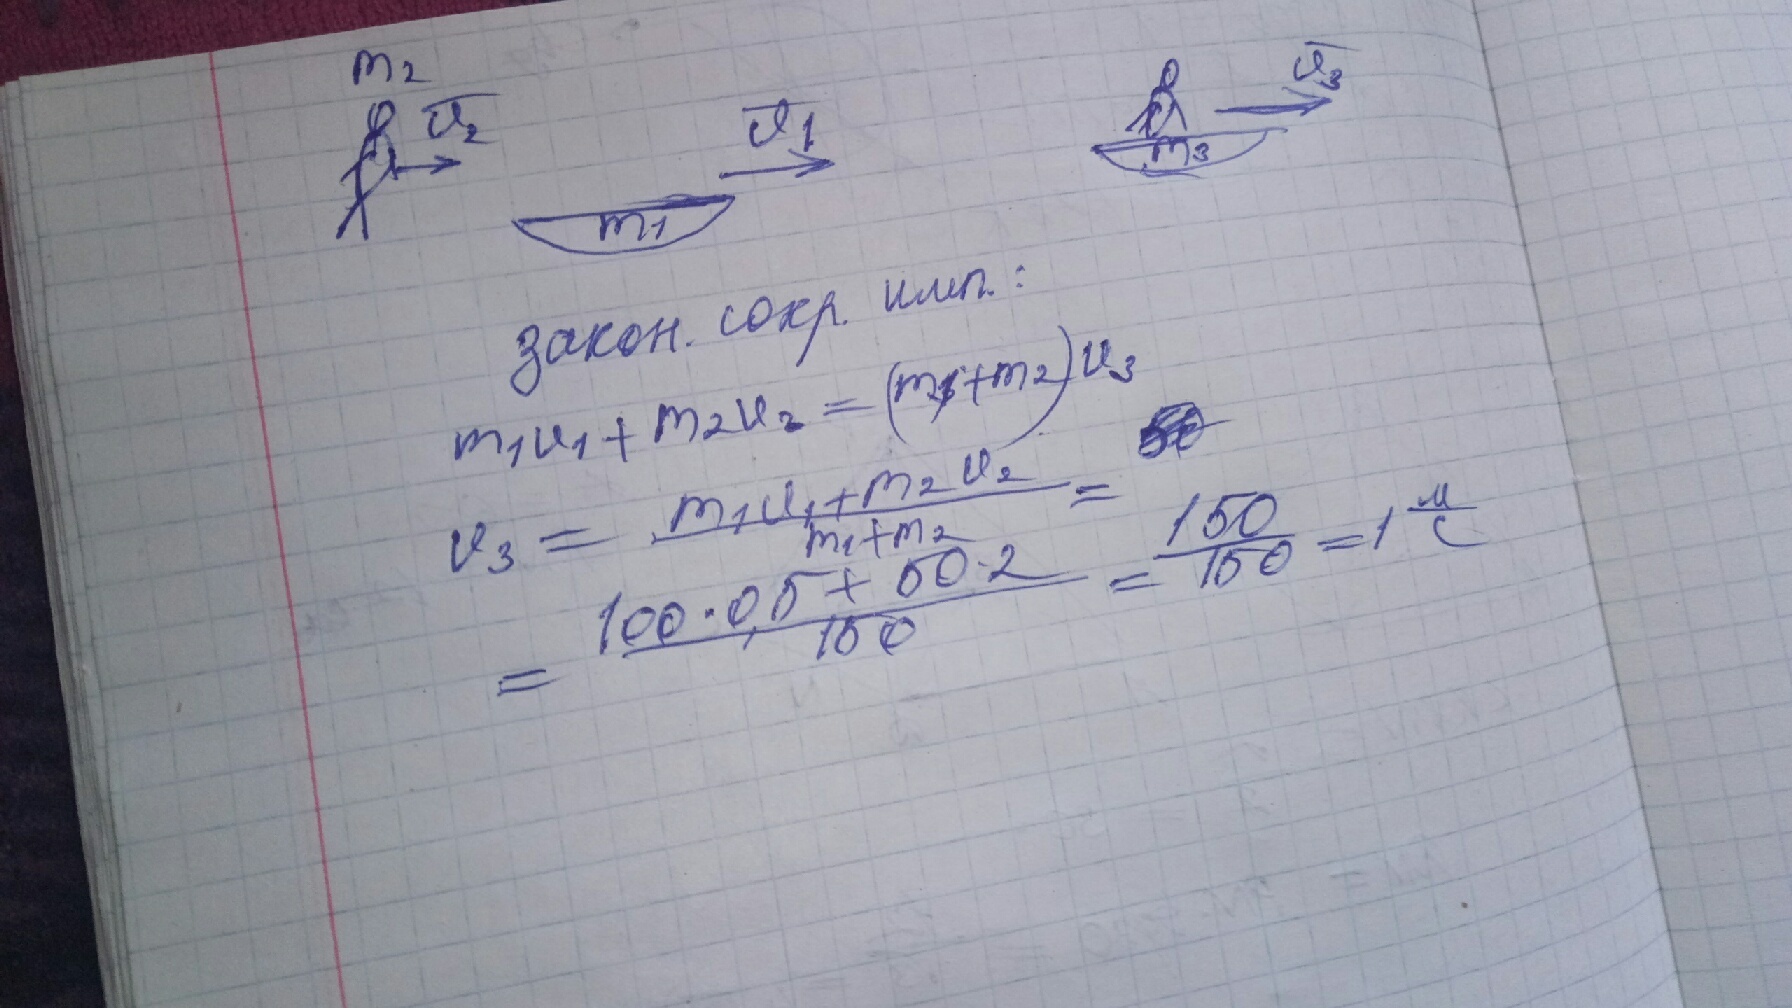 m₂
v̅₂
v̅₁
v̅₃
m₁
m₃
закон. сохр. имп.:
m₁v₁ + m₂v₂ = (m₁+m₂)v₃
v₃ = (m₁v₁+m₂v₂)/(m₁+m₂) =
= (100·0,5+50·2)/150 = 150/150 = 1 м/с